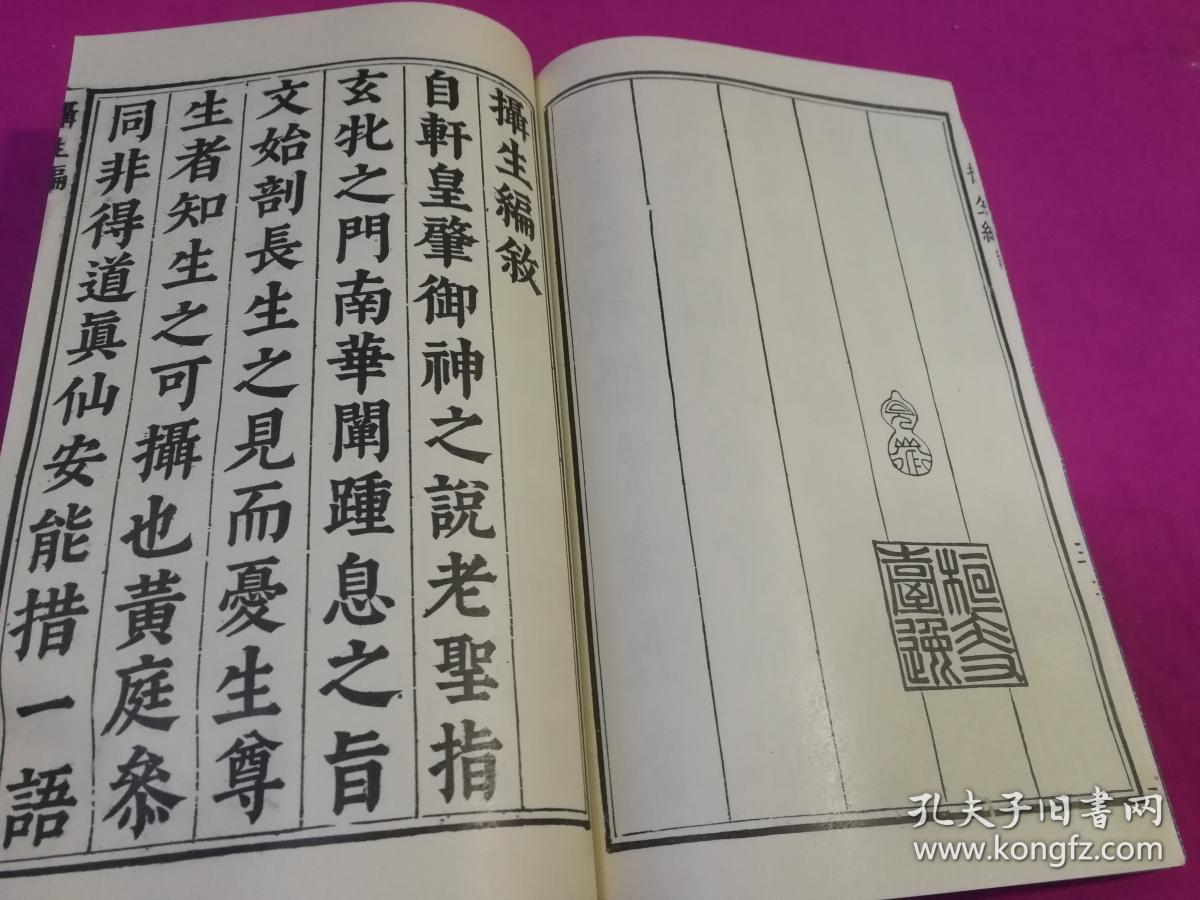 攝生編敘
自軒皇肇御神之說老聖指
玄牝之門南華闡踵息之旨
文始剖長生之見而憂生尊
生者知生之可攝也黃庭叅
同非得道眞仙安能措一語
攝生編
孔夫子旧书网
www.kongfz.com